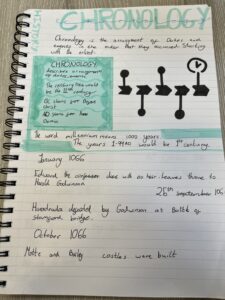 CHRONOLOGY
Chronology is the arrangement of Dates and
events in the order that they occurred. Starting
with the earliest.
CHRONOLOGY
describes arrangements
of dates, events
The century
would
be the 21st century.
before
Christ
AD stans for Anno
Domini
The word millennium means 1000 years
The years 1- would be 1st century.
January 1066
Edward the confessor dies with no heir leaves throne to
Harold Godwinson
26th september 1066
Haradrada defeated by Godwinson at Battle of
stamford bridge.
October 1066
Motte and Bailey castles were built